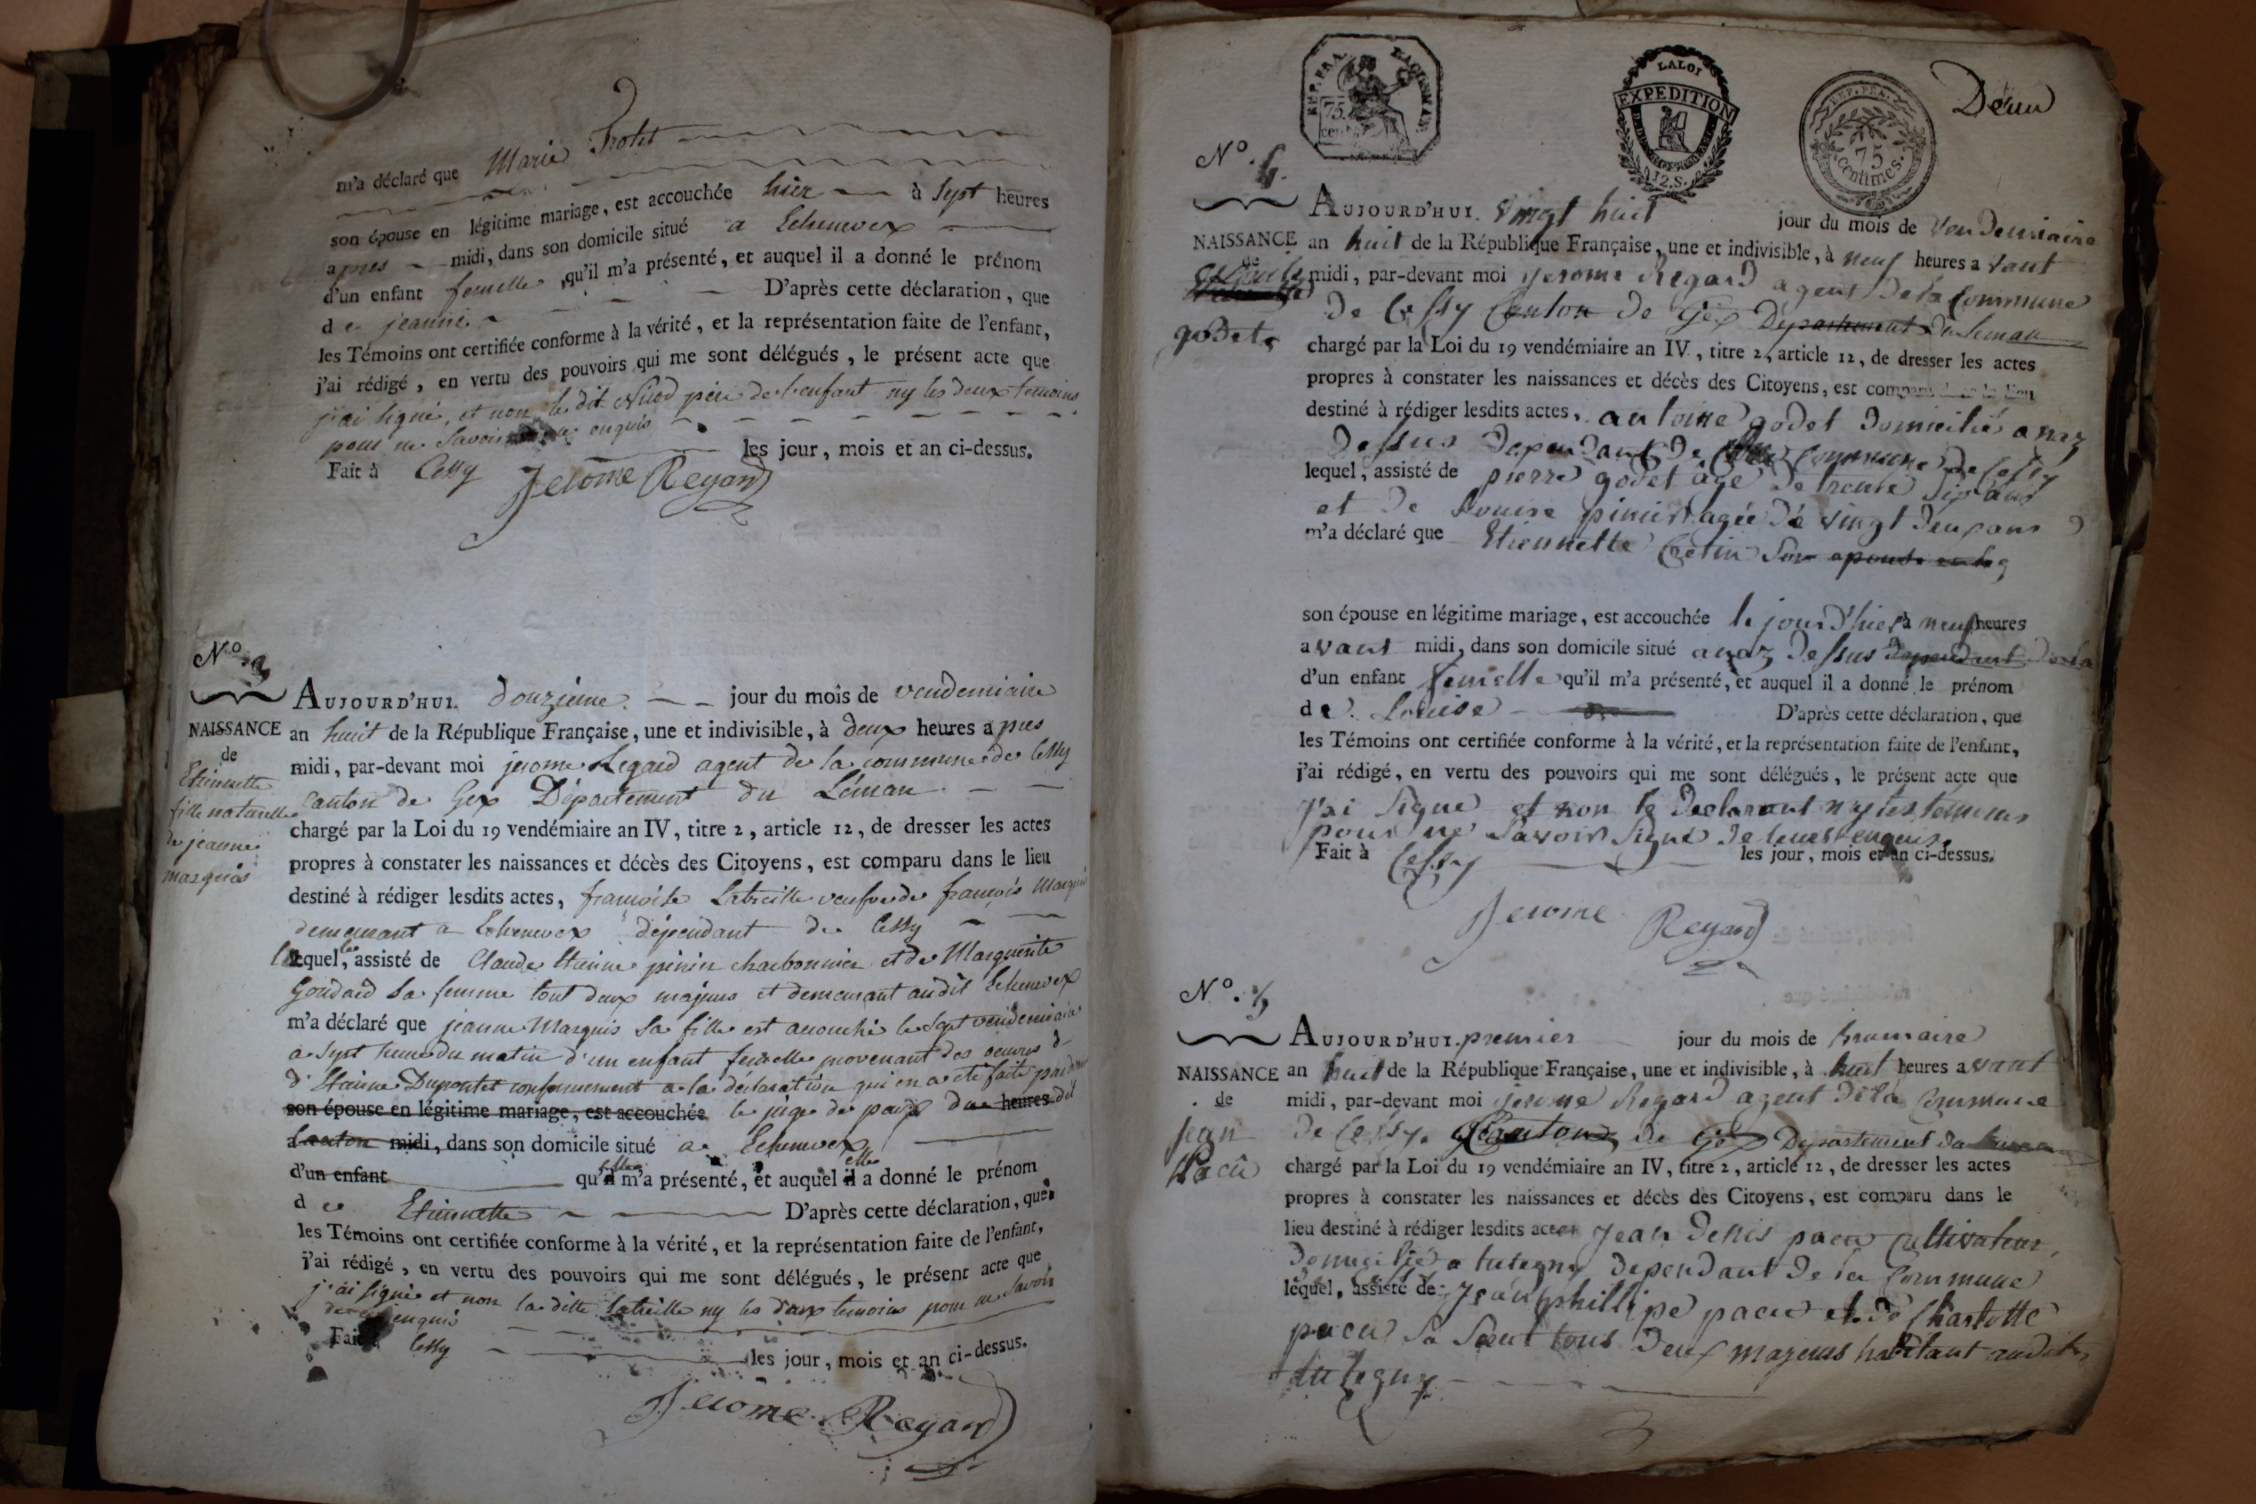 m'a déclaré que Marie
son épouse en légitime mariage, est accouchée hier à sept heures
apres midi, dans son domicile situé a Echenevex
d'un enfant femelle, qu'il m'a présenté, et auquel il a donné le prénom
de jeanne D'après cette déclaration, que
les Témoins ont certifiée conforme à la vérité, et la représentation faite de l'enfant,
j'ai rédigé, en vertu des pouvoirs qui me sont délégués, le présent acte que
j'ai signé, et non le dit Nicod pere de l'enfant ny les deux temoins
pour ne savoir enquis
Fait à Cessy les jour, mois et an ci-dessus.
Jerome Regard
N.o 3
AUJOURD'HUI. douzieme jour du mois de vendemiaire
NAISSANCE an huit de la République Française, une et indivisible, à deux heures apres
de
midi, par-devant moi jerome Regard agent de la commune de Cessy
Etiennette
fille naturelle
de jeanne
marquis
Canton de Gex Département du Léman
chargé par la Loi du 19 vendémiaire an IV, titre 2, article 12, de dresser les actes
propres à constater les naissances et décès des Citoyens, est comparu dans le lieu
destiné à rédiger lesdits actes, francoise Latreille veufve de francois Marquis
demeurant a Echenevex dépendant de Cessy
lequel, assisté de Claude Etienne pinier charbonnier et de Marguerite
Goudard sa femme tout deux majeurs et demeurant audit Echenevex
m'a déclaré que jeanne Marquis sa fille est accouché le sept vendemiaire
a sept heure du matin d'un enfant femelle provenant des oeuvres d
d'Etienne Dupontet conformement a la déclaration qui en a été faite par devant
son épouse en légitime mariage, est accouchée le juge de paix du heures dit
a Canton midi, dans son domicile situé a Echenevex
d'un enfant qu'il elle m'a présenté, et auquel il elle a donné le prénom
de Etiennette D'après cette déclaration, que
les Témoins ont certifiée conforme à la vérité, et la représentation faite de l'enfant,
j'ai rédigé, en vertu des pouvoirs qui me sont délégués, le présent acte que
j'ai signé et non la ditte Latreille ny les deux temoins pour ne savoir
de enquis
Fait Cessy les jour, mois et an ci-dessus.
Jerome Regard
REP. FRA.
75
cent
LA LOI
EXPEDITION
12. S.
REP. FRA.
75
centimes.
N.o 4
AUJOURD'HUI. vingt huit jour du mois de vendemiaire
NAISSANCE an huit de la République Française, une et indivisible, à neuf heures avant
de
godet
midi, par-devant moi jerome Regard agent de la Commune
de Cessy Canton de Gex Departement du Leman
chargé par la Loi du 19 vendémiaire an IV, titre 2, article 12, de dresser les actes
propres à constater les naissances et décès des Citoyens, est comparu dans le lieu
destiné à rédiger lesdits actes, antoine godet domicilié a naz
dessus dependant de Commune de Cessy
lequel, assisté de pierre godet agé de trente six ans
et de Louise pinier agée de vingt deux ans
m'a déclaré que Etiennette son epouse en leg
son épouse en légitime mariage, est accouchée le jour d'hier à neuf heures
avant midi, dans son domicile situé a naz dessus dependant de la
d'un enfant femelle qu'il m'a présenté, et auquel il a donné le prénom
de Louise D'après cette déclaration, que
les Témoins ont certifiée conforme à la vérité, et la représentation faite de l'enfant,
j'ai rédigé, en vertu des pouvoirs qui me sont délégués, le présent acte que
j'ai signé et non le declarant ny les temoins
pour ne savoir signé de leur enquis.
Fait à Cessy les jour, mois et an ci-dessus.
Jerome Regard
N.o 5
AUJOURD'HUI. premier jour du mois de brumaire
NAISSANCE an huit de la République Française, une et indivisible, à huit heures avant
de
jean
pacu
midi, par-devant moi jerome Regard agent de la Commune
de Cessy Canton de Gex Departement du Leman
chargé par la Loi du 19 vendémiaire an IV, titre 2, article 12, de dresser les actes
propres à constater les naissances et décès des Citoyens, est comparu dans le
lieu destiné à rédiger lesdits actes jean denis pacu Cultivateur,
domicilié a tutegny dependant de la Commune
de Cessy
lequel, assisté de jean phillipe pacu et de Charlotte
pacu sa soeur tous deux majeurs habitant audit
tutegny